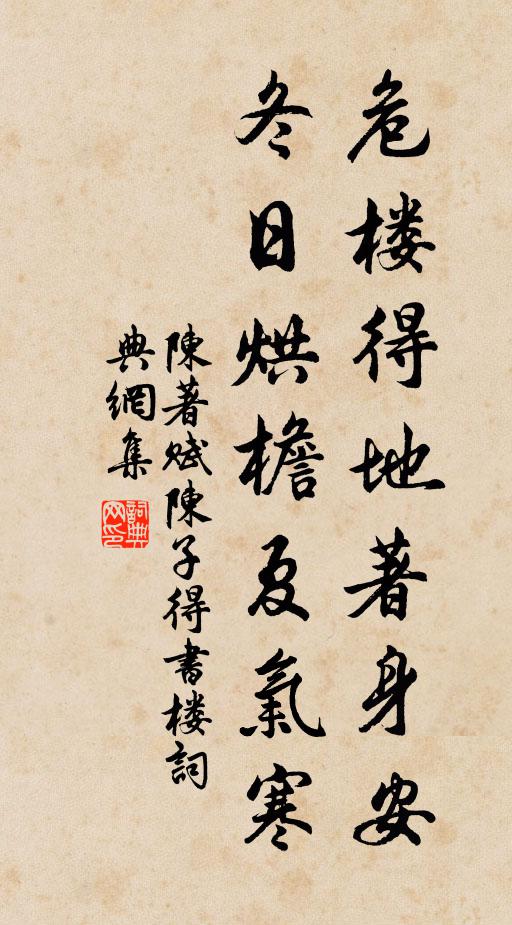 危楼得地著身安
冬日烘檐夏氣寒
陳著赋陳子得書楼詞
典網集
詞典网印